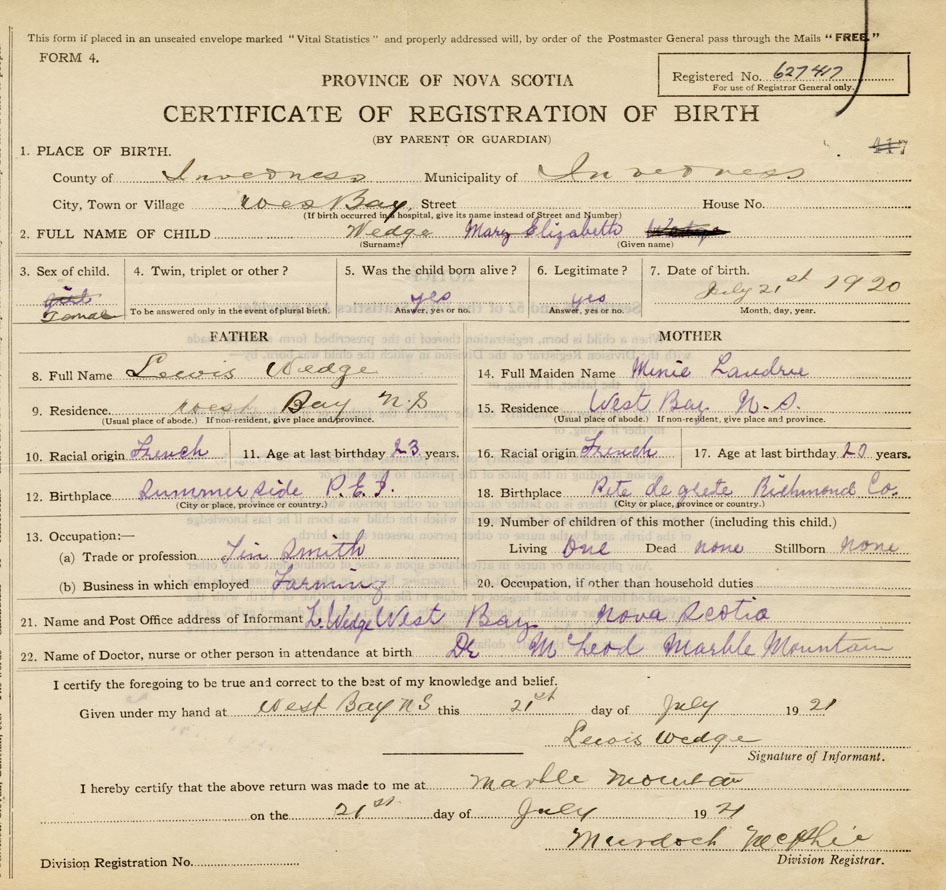 This form if placed in an unsealed envelope marked "Vital Statistics" and properly addressed will, by order of the Postmaster General pass through the Mails "FREE."
FORM 4.
Registered No. 627417
For use of Registrar General only.
PROVINCE OF NOVA SCOTIA
CERTIFICATE OF REGISTRATION OF BIRTH
(BY PARENT OR GUARDIAN)
1. PLACE OF BIRTH.
County of Inverness Municipality of Inverness
City, Town or Village West Bay, Street House No.
(If birth occurred in a hospital, give its name instead of Street and Number)
2. FULL NAME OF CHILD Wedge Mary Elizabeth Wedge
(Surname) (Given name)
3. Sex of child. 4. Twin, triplet or other? 5. Was the child born alive? 6. Legitimate? 7. Date of birth.
girl yes yes July 21st 1920
Female To be answered only in the event of plural birth. Answer, yes or no. Answer, yes or no. Month, day, year.
FATHER MOTHER
8. Full Name Lewis Wedge 14. Full Maiden Name Minie Landrie
9. Residence. West Bay N.S 15. Residence West Bay N.S.
(Usual place of abode.) If non-resident, give place and province. (Usual place of abode.) If non-resident, give place and province.
10. Racial origin French 11. Age at last birthday 23 years. 16. Racial origin French 17. Age at last birthday 20 years.
12. Birthplace Summerside P.E.I. 18. Birthplace Pete de grete Richmond Co.
(City or place, province or country.) (City or place, province or country.)
13. Occupation:— 19. Number of children of this mother (including this child.)
(a) Trade or profession Tin Smith Living One Dead none Stillborn none
(b) Business in which employed Farming 20. Occupation, if other than household duties
21. Name and Post Office address of Informant L. Wedge West Bay Nova Scotia
22. Name of Doctor, nurse or other person in attendance at birth Dr McLeod Marble Mountain
I certify the foregoing to be true and correct to the best of my knowledge and belief.
Given under my hand at West Bay NS this 21st day of July 1921
Lewis Wedge
Signature of Informant.
I hereby certify that the above return was made to me at Marble Mountain
on the 21st day of July 1921
Murdoch McPhie
Division Registrar.
Division Registration No.